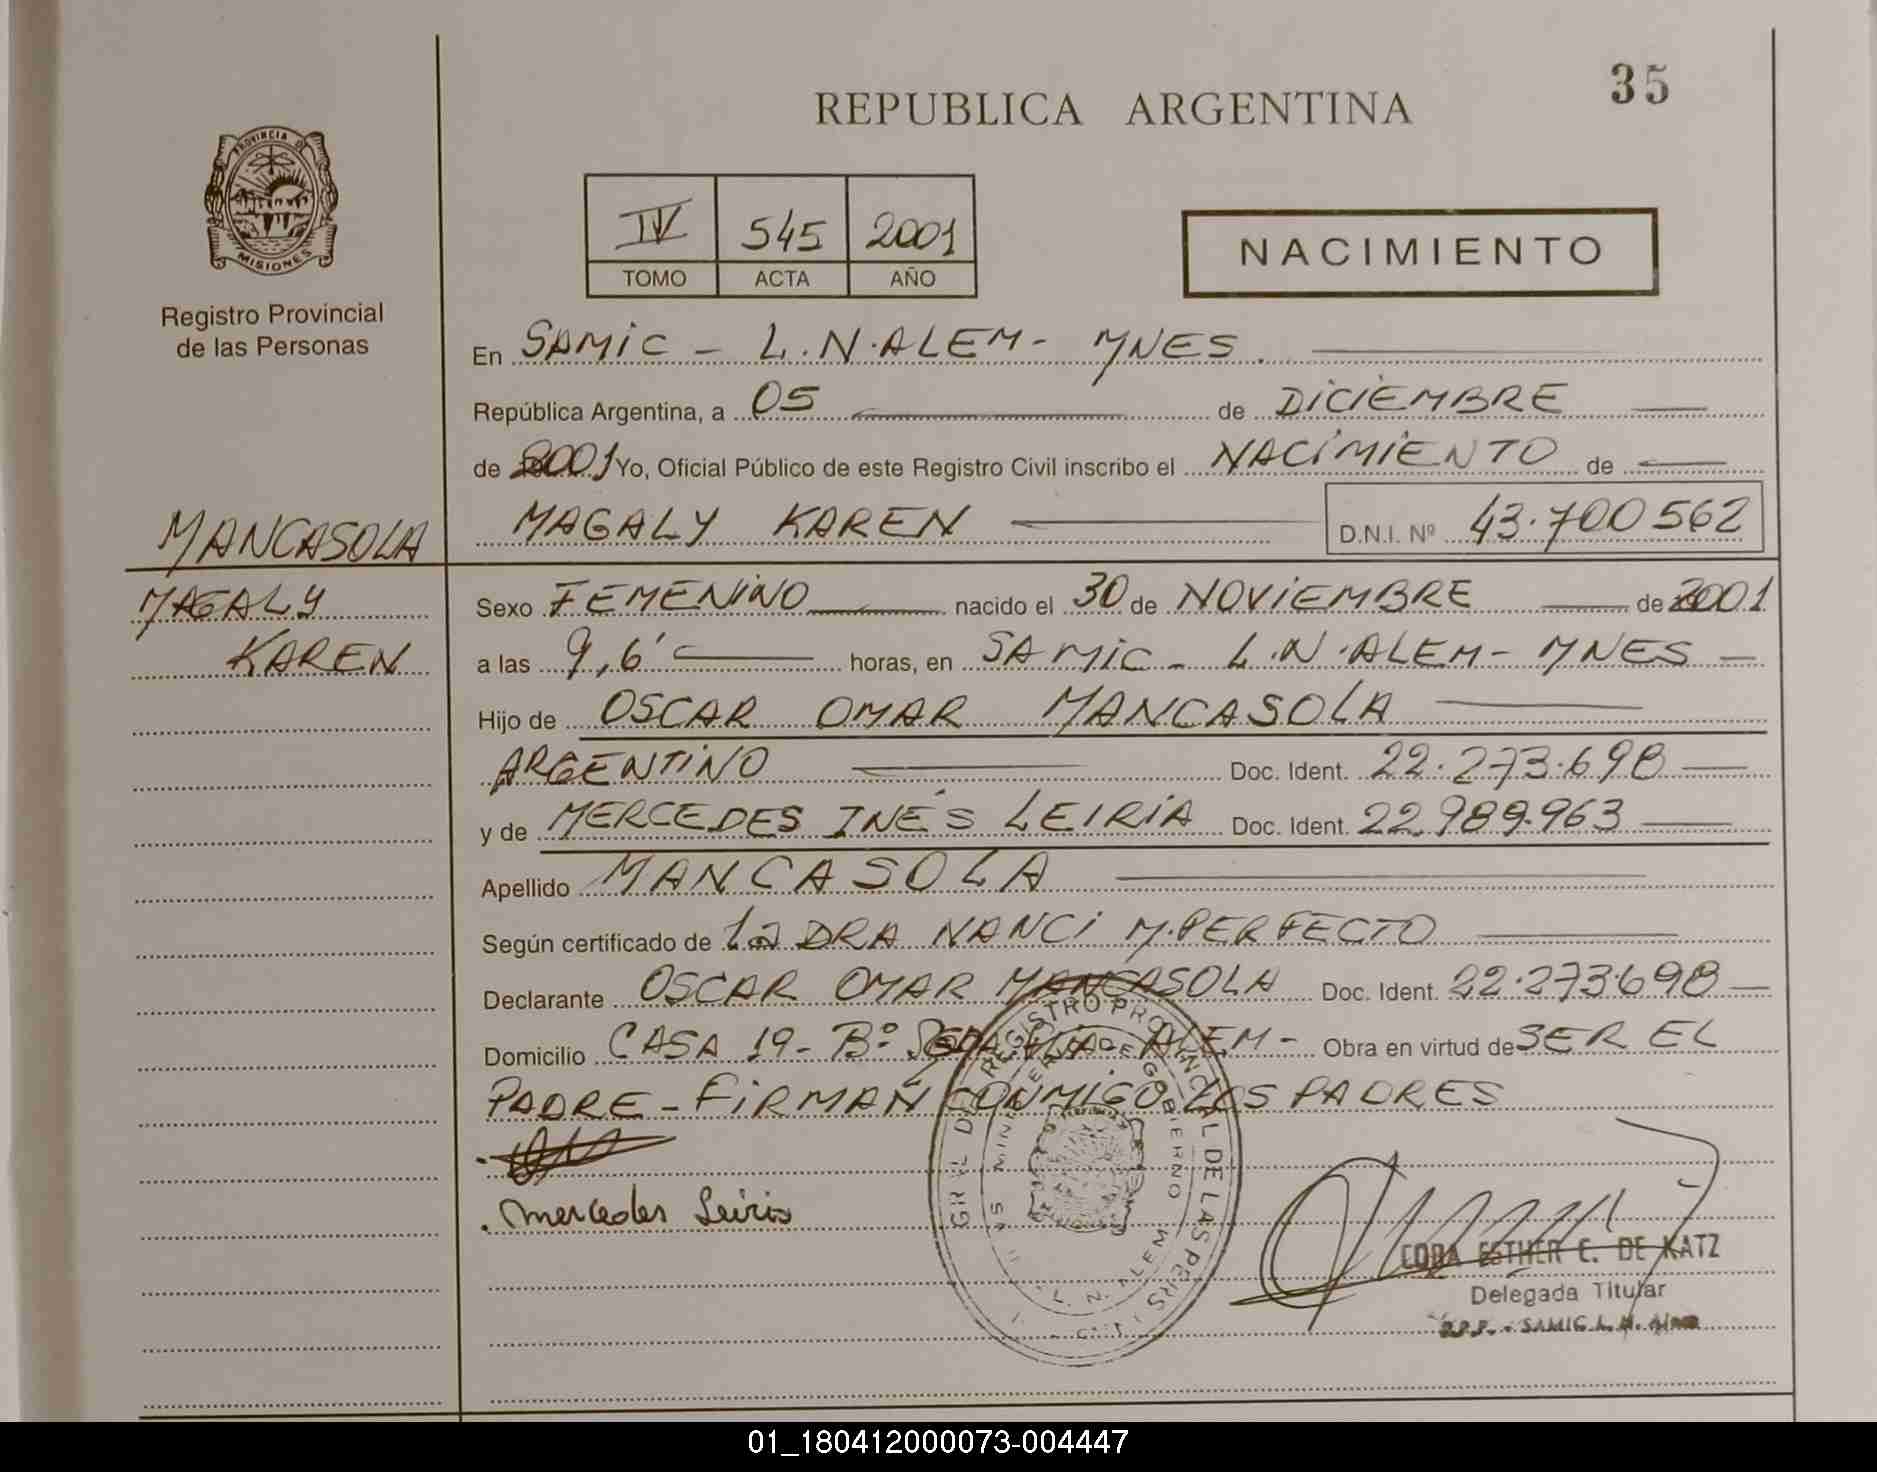 35
REPUBLICA ARGENTINA
PROVINCIA DE
MISIONES
Registro Provincial
de las Personas
IV 545 2001
TOMO ACTA AÑO
NACIMIENTO
En SAMIC - L.N.ALEM - MNES.
República Argentina, a 05 de DICIEMBRE
de 2001 Yo, Oficial Público de este Registro Civil inscribo el NACIMIENTO de
MAGALY KAREN D.N.I. Nº 43.700562
MANCASOLA
MAGALY
KAREN
Sexo FEMENINO nacido el 30 de NOVIEMBRE de 2001
a las 9,6' horas, en SAMIC - L.N.ALEM - MNES
Hijo de OSCAR OMAR MANCASOLA
ARGENTINO Doc. Ident. 22.273.698
y de MERCEDES INÉS LEIRIA Doc. Ident. 22.989.963
Apellido MANCASOLA
Según certificado de la DRA NANCI M. PERFECTO
Declarante OSCAR OMAR MANCASOLA Doc. Ident. 22.273.698
Domicilio CASA 19 - Bº ALEM - Obra en virtud de SER EL
PADRE - FIRMAN CONMIGO LOS PADRES
Mercedes Leiria
REGISTRO PROVINCIAL DE LAS PERS
MINISTERIO DE GOBIERNO
L. N. ALEM
CORA ESTHER C. DE KATZ
Delegada Titular
R.P.P. - SAMIC L.N. Alem
01_180412000073-004447